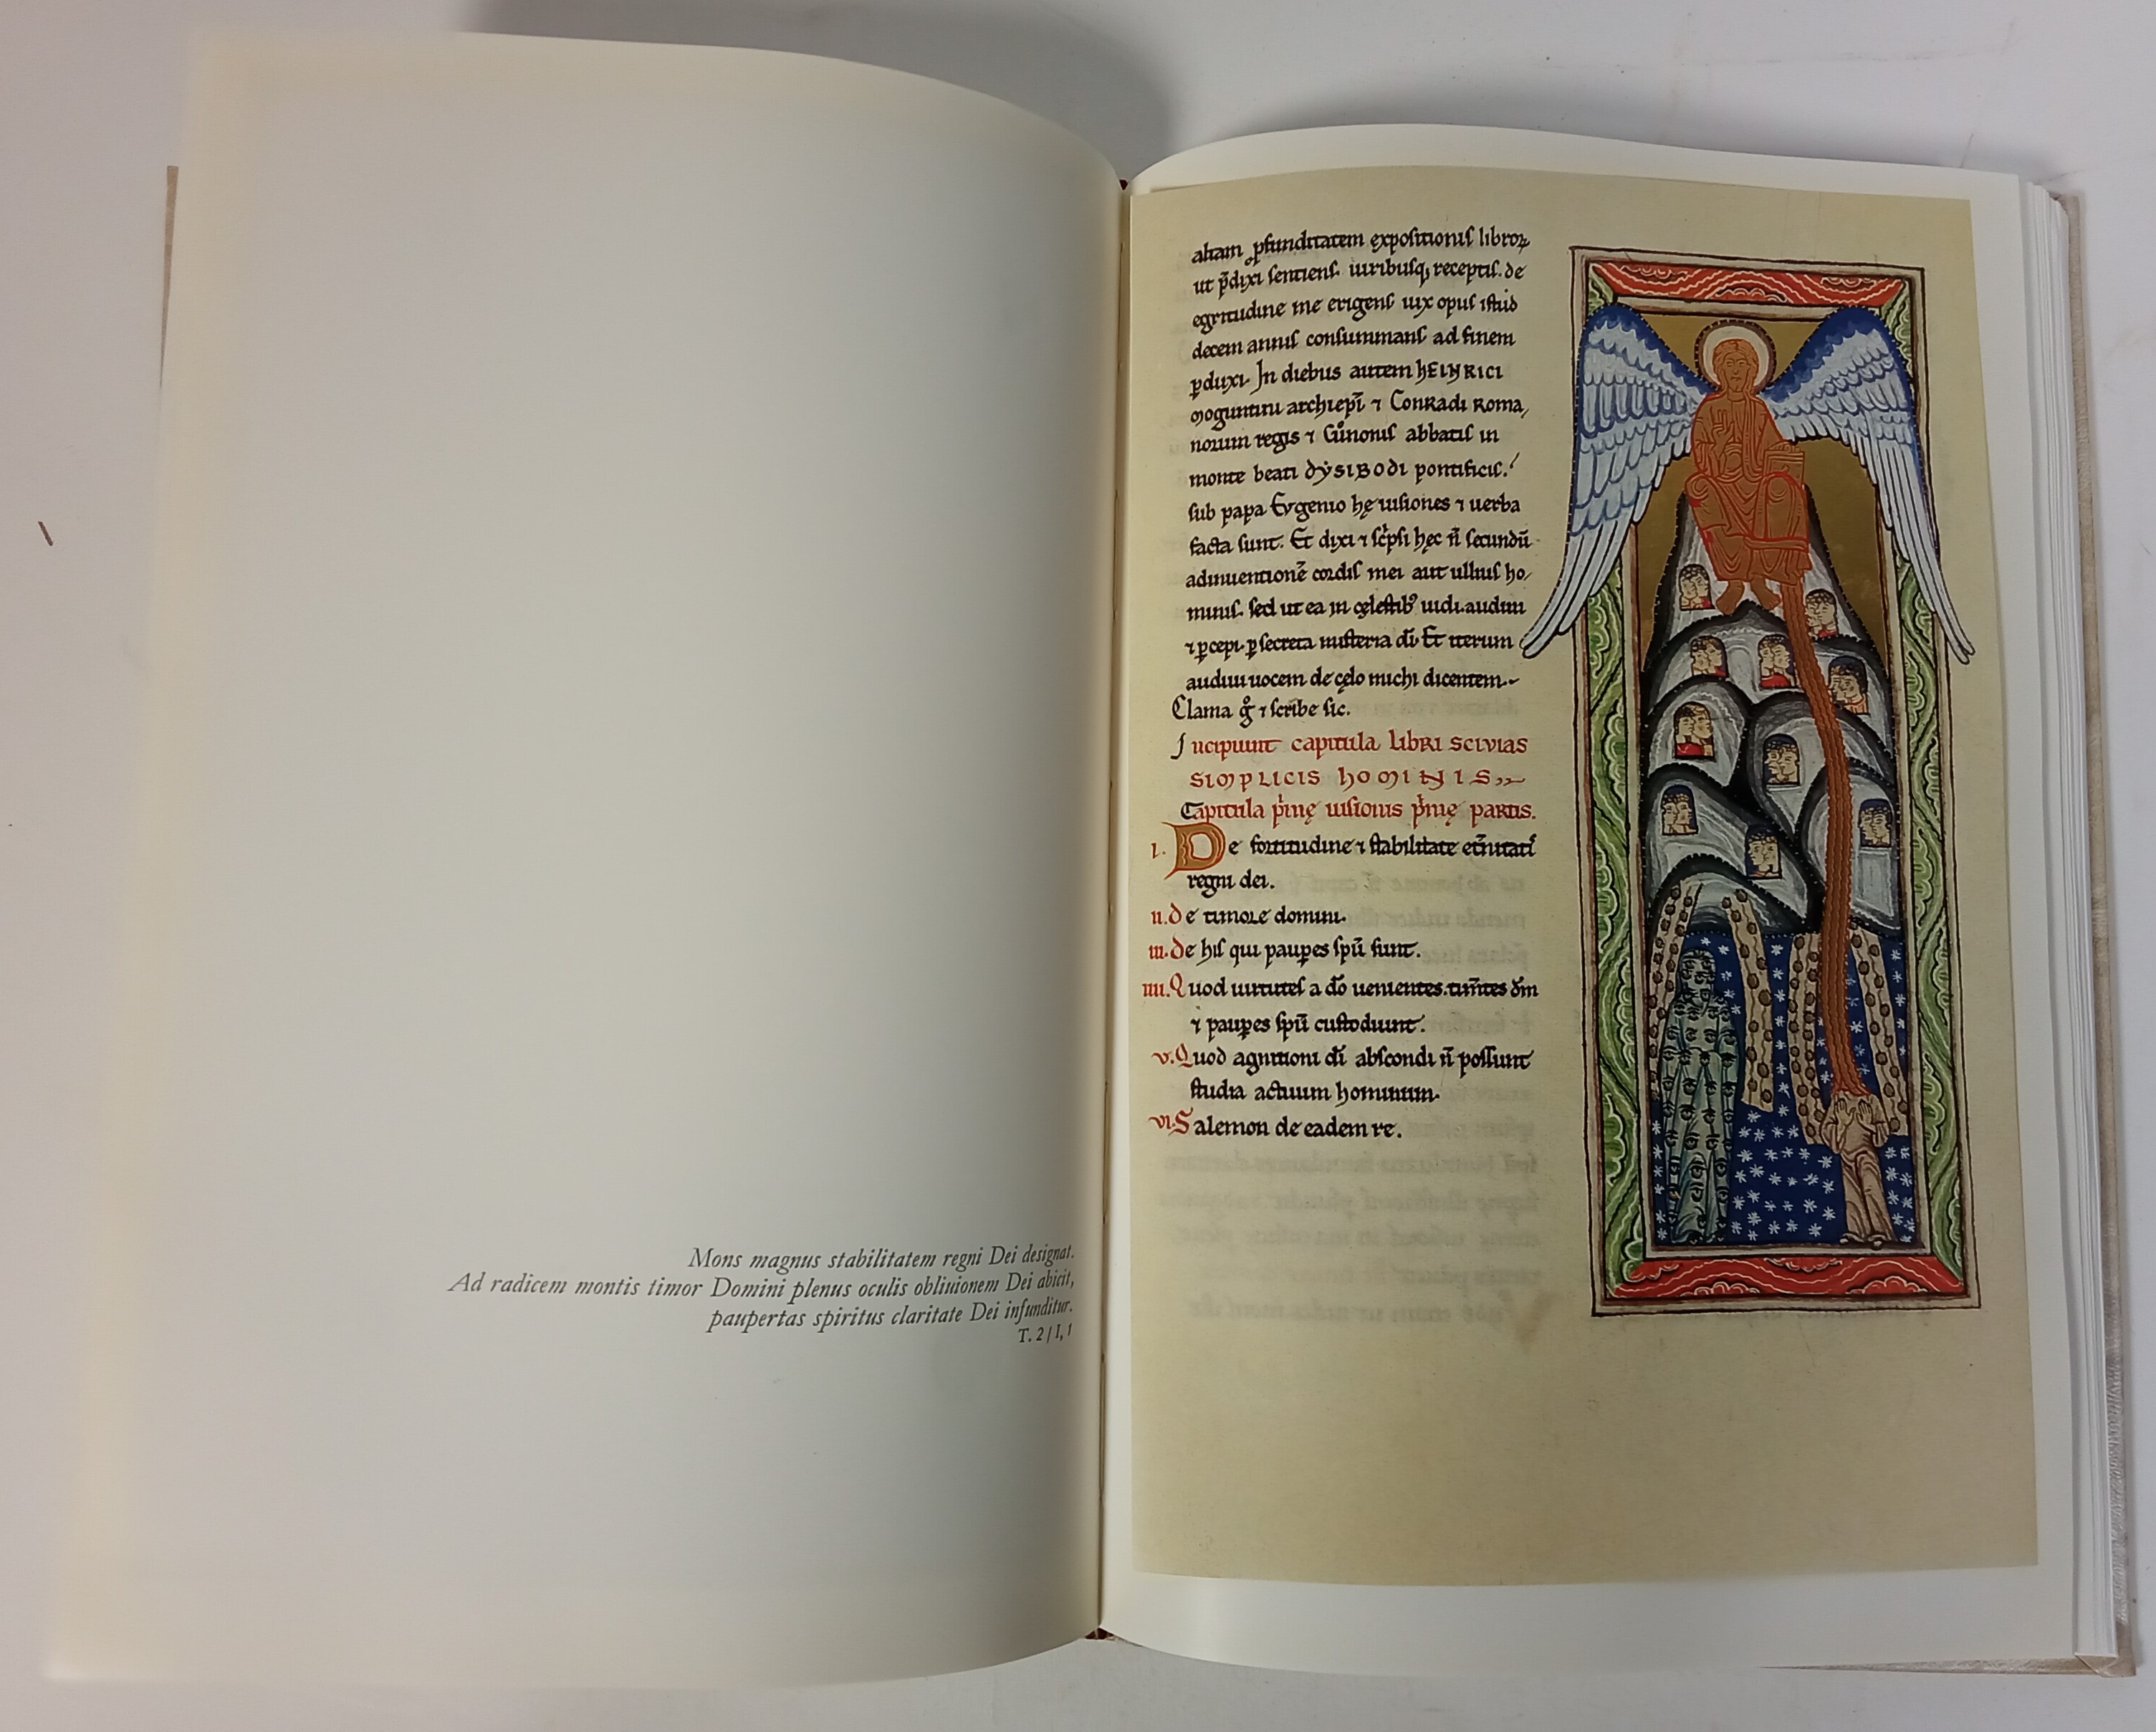 Mons magnus stabilitatem regni Dei designat.
Ad radicem montis timor Domini plenus oculis obliuionem Dei abicit,
paupertas spiritus claritate Dei infunditur.
T. 2 / I, 1
altam ꝓfunditatem expoſitioniſ libroꝝ
ut p̄dixi ſentienſ. uiribuſq; receptiſ. de
egritudine me erigenſ uix opuſ iſtud
decem anniſ conſummanſ ad finem
ꝑduxi. In diebus autem hEINRICI
moguntini archiep̄i ⁊ Conradi Roma,
norum regis ⁊ Cůnoniſ abbatiſ in
monte beati dẏSIBOdI pontificiſ.
ſub papa Evgenio hę uiſiones ⁊ uerba
facta ſunt. Et dixi ⁊ ſcͥpſi hęc n̄ ſecundū
adinuentionē cordiſ mei aut ulliuſ ho,
miniſ. ſed ut ea in cęleſtibꝰ uidi. audiui
⁊ ꝑcepi. ꝑ ſecreta miſteria dī. Et iterum
audiui uocem de cęlo michi dicentem.
Clama gͦ ⁊ ſcribe ſic.
Incipiunt capitula LIBRI SCIVIAS
SIMPLICIS hOMINIS
Capitula pͥmę uiſionis pͥmę paRtis.
I. De fortitudine ⁊ ſtabilitate et̄nitatiſ
regni dei.
II. De timore domini.
III. De hiſ qui pauꝑes ſpū ſunt.
IIII. Quod uirtuteſ a dō uenientes. tim̄tes dm̄
⁊ pauꝑes ſpū cuſtodiunt.
V. Quod agnitioni dī abſcondi n̄ poſſunt
ſtudia actuum hominum.
VI. Salemon de eadem re.